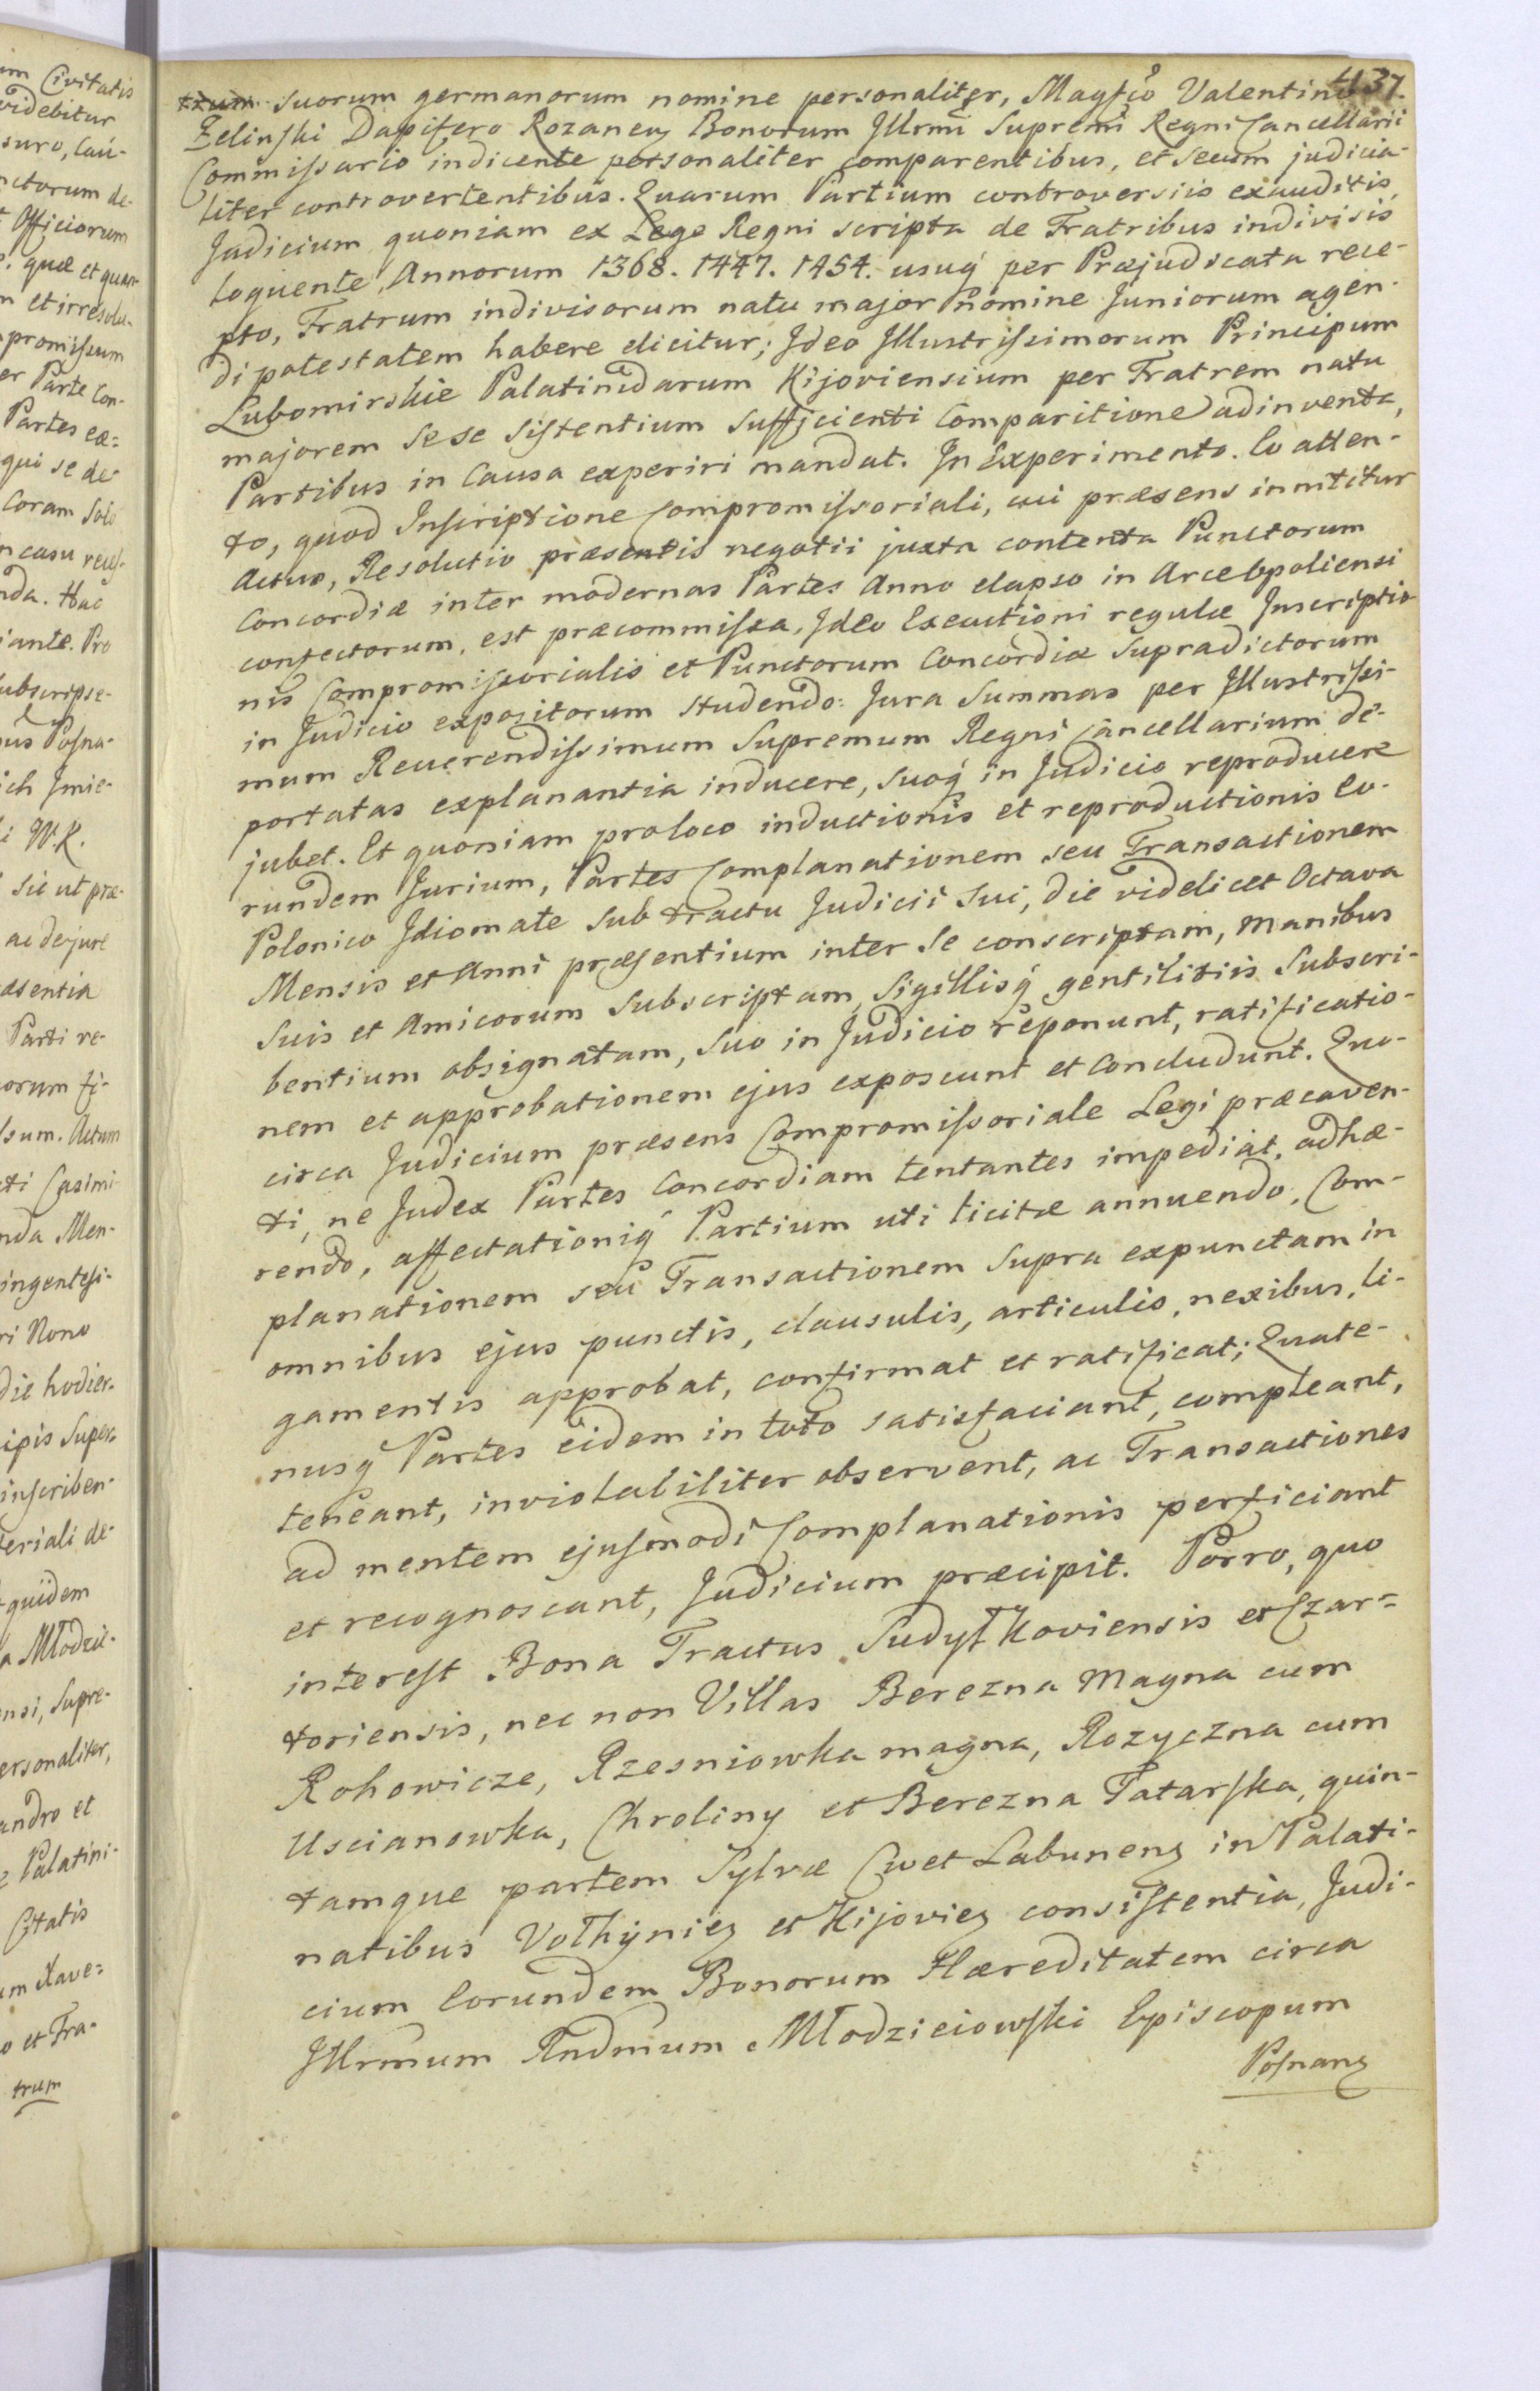 437.
trum suorum germanorum nomine personaliter, Magfco Valentino
Zelinski Dapifero Rozaneng Bonorum Jllrmi Supremi Regni Cancellarii
Commissario indicente personaliter comparentibus, et secum judicia-
liter controvertentibus. Quarum Partium controversiis exauditis,
Judicium quoniam ex Lege Regni scripta de Fratribus indivisis
loquente, Annorum 1368. 1447. 1454. usuq́ per Præjudicata rece-
pto, Fratrum indivisorum natu major nomine Juniorum agen-
di potestatem habere dicitur; Jdeo Jllustrissimorum Principum
Lubomirskie Palatinidarum Kijoviensium per Fratrem natu
majorem sese sistentium sufficienti Comparitione adinventa,
Partibus in Causa experiri mandat. Jn Experimento. Eo atten-
to, quod Jnscriptione Compromissoriali, cui præsens innititur
Actus, Resolutio præsentis negotii juxta contenta Punctorum
Concordiæ inter modernas Partes Anno elapso in Arcebpoliensi
confectorum, est præcommissa, Jdeo Executioni regulæ Jnscriptio
nis Compromissorialis et Punctorum Concordiæ supradictorum
in Judicio expositorum studendo: Jura Summas per Jllustrissi-
mum Reverendissimum Supremum Regni Cancellarium de-
portatas explanantia inducere, suoq́ in Judicio reproducere
jubet. Et quoniam pro loco inductionis et reproductionis eo-
rundem Jurium, Partes Complanationem seu Transactionem
Polonico Jdiomate sub tractu Judicii sui, die videlicet Octava
Mensis et Anni præsentium inter se conscriptam, manibus
suis et Amicorum subscriptam, Sigillisq́ gentilitiis Subscri-
bentium obsignatam, suo in Judicio reponunt, ratificatio-
nem et approbationem ejus exposcunt et concludunt. Quo-
circa Judicium præsens Compromissoriale Legi præcaven-
ti, ne Judex Partes Concordiam tentantes impediat, adhæ-
rendo, affectationiq́ Partium uti licitæ annuendo, Com-
planationem seu Transactionem supra expunctam in
omnibus ejus punctis, clausulis, articulis, nexibus, li-
gamentis approbat, confirmat et ratificat; Quate-
nusq́ Partes eidem in toto satisfaciant, compleant,
teneant, inviolabiliter observent, ac Transactiones
ad mentem ejusmodi Complanationis perficiant
et recognoscant, Judicium præcipit. Porro, quo
interest Bona Tractus Sudyłkoviensis et Czar=
toriensis, nec non Villas Berezna Magna cum
Rohowicze, Rzesniowka magna, Rozyczna cum
Uscianowka, Chroliny et Berezna Tatarska, quin-
tamque partem Sylvæ Cwet Labuneng in Palati-
natibus Volhynieg et Kijovieg consistentia, Judi-
cium Eorundem Bonorum Hæreditatem circa
Jllrmum Rndmum Młodzieiowski Episcopum
Posnang